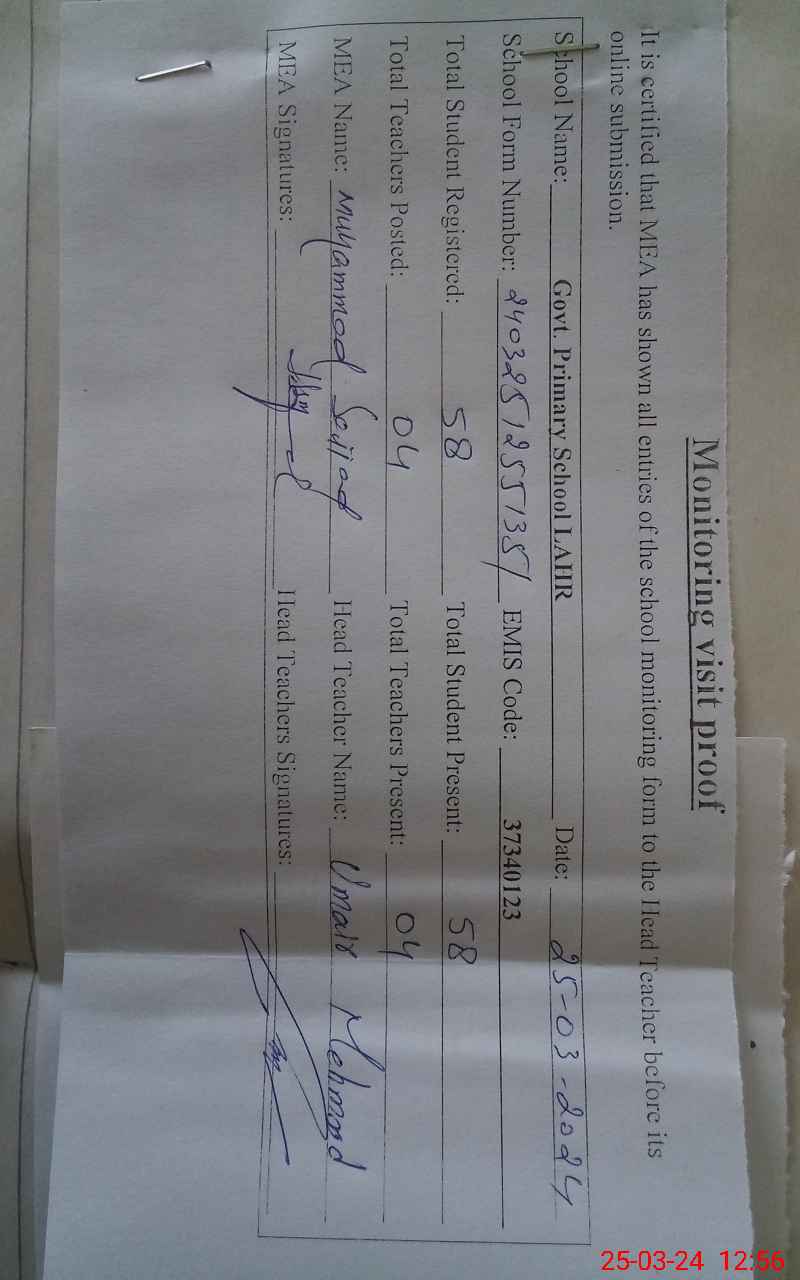 Monitoring visit proof
It is certified that MEA has shown all entries of the school monitoring form to the Head Teacher before its
online submission.
School Name: Govt. Primary School LAHR Date: 25-03-2024
School Form Number: 2403251255135 EMIS Code: 37340123
Total Student Registered: 58 Total Student Present: 58
Total Teachers Posted: 04 Total Teachers Present: 04
MEA Name: Muhammad Sajjad Head Teacher Name: Umair Mehmood
MEA Signatures: Head Teachers Signatures:
25-03-24 12:56